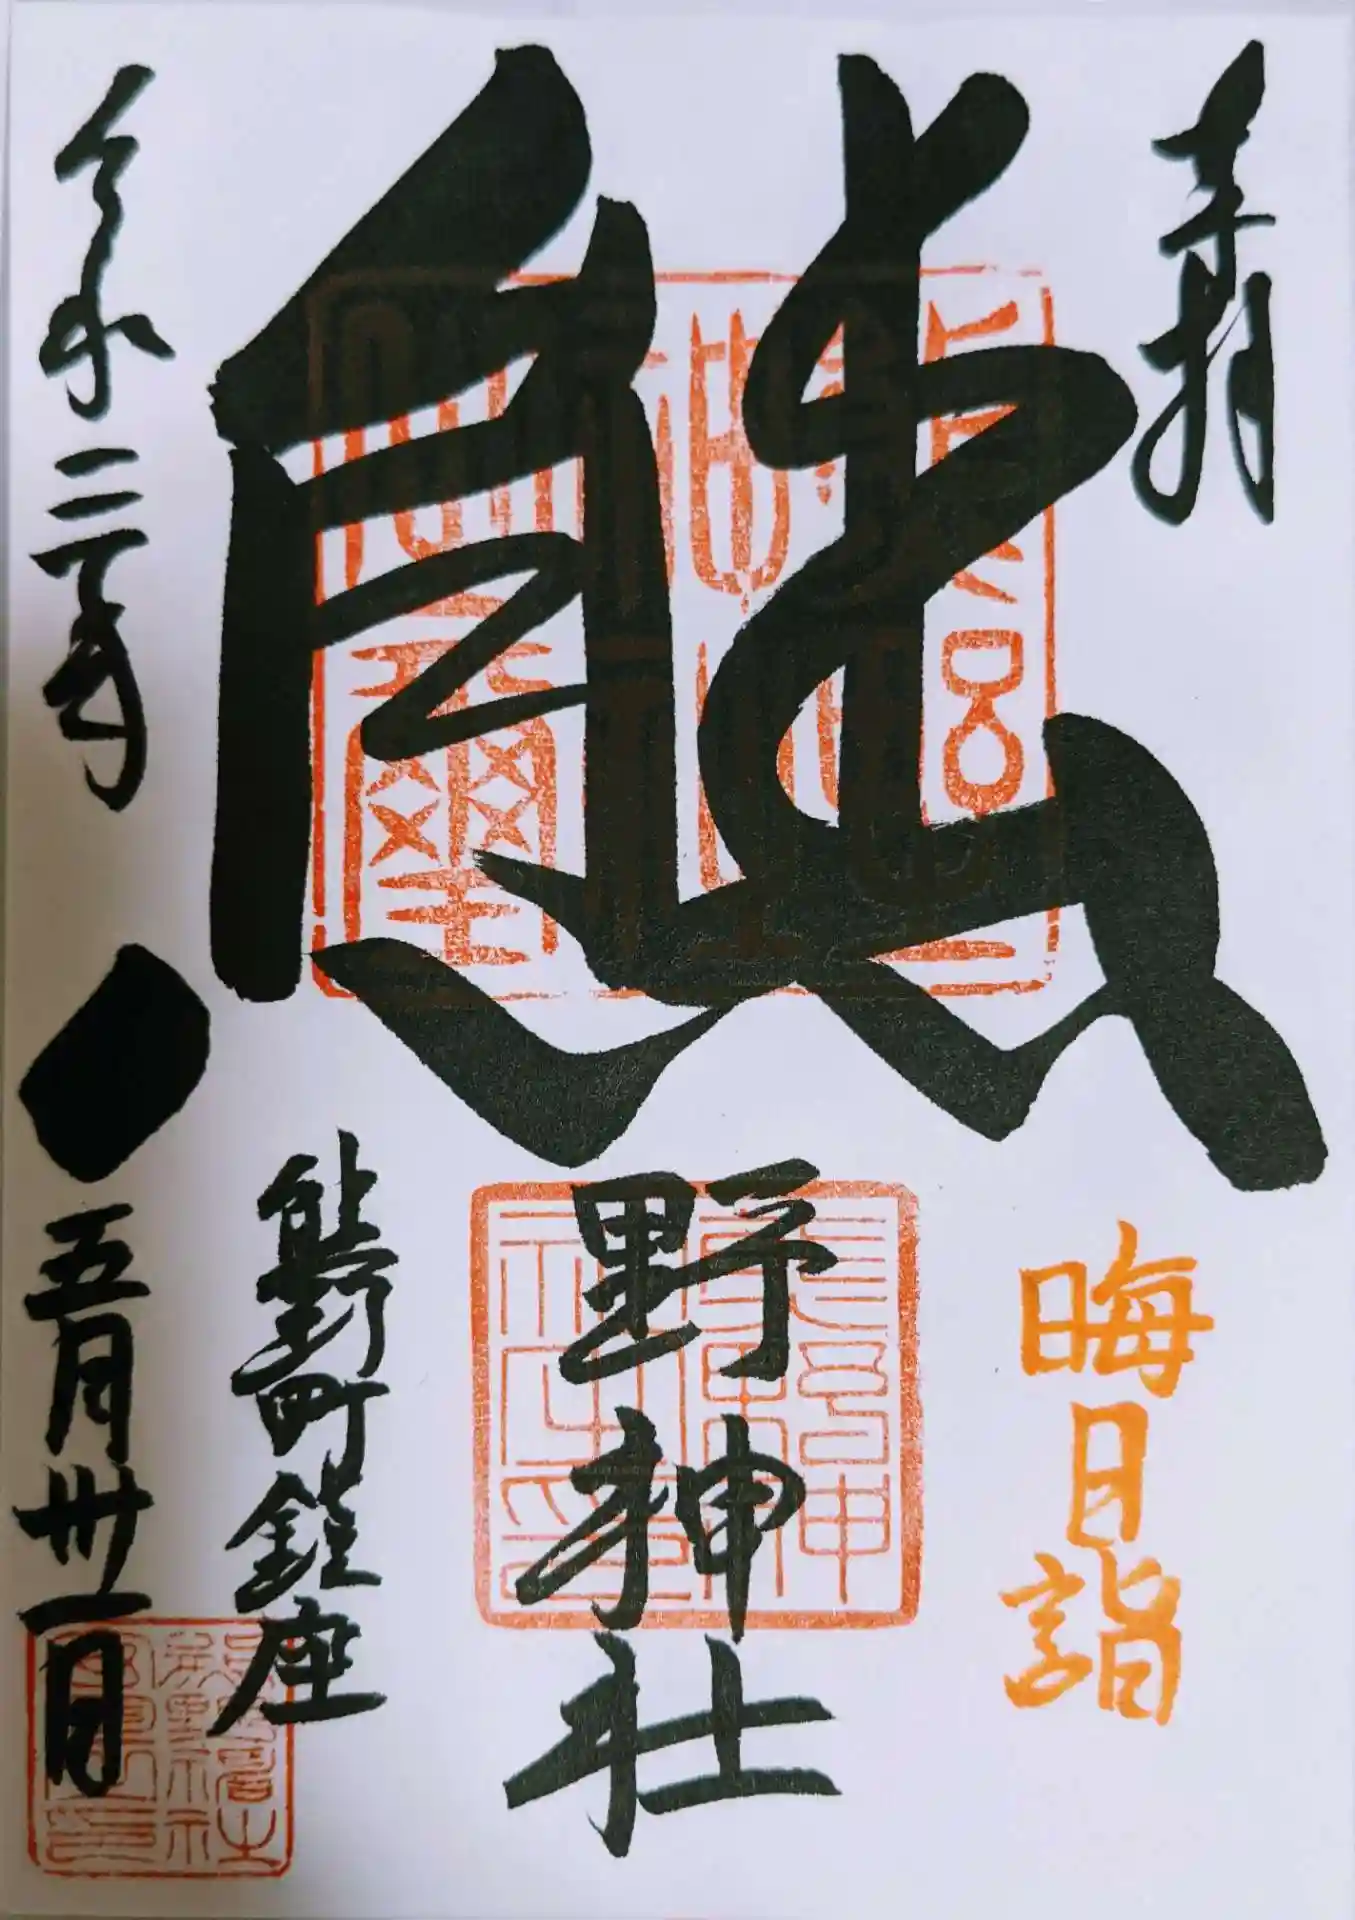 奉拝
晦日詣
熊野神社
熊野町鎮座
令和二年
五月卅一日